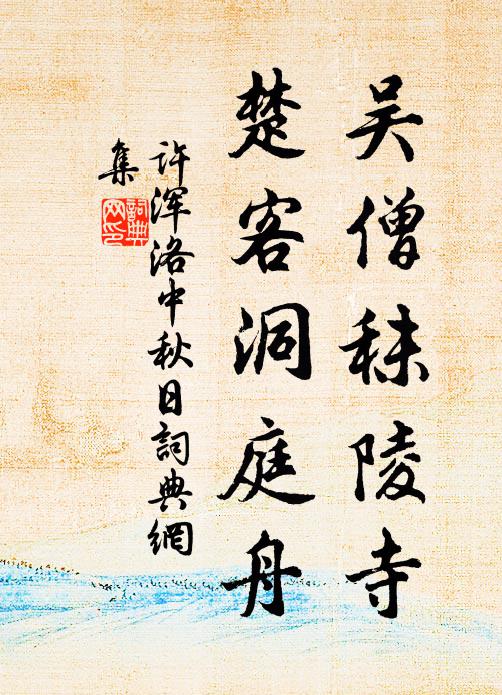 吴僧秣陵寺
楚客洞庭舟
许浑洛中秋日詞典網
集
詞典网印